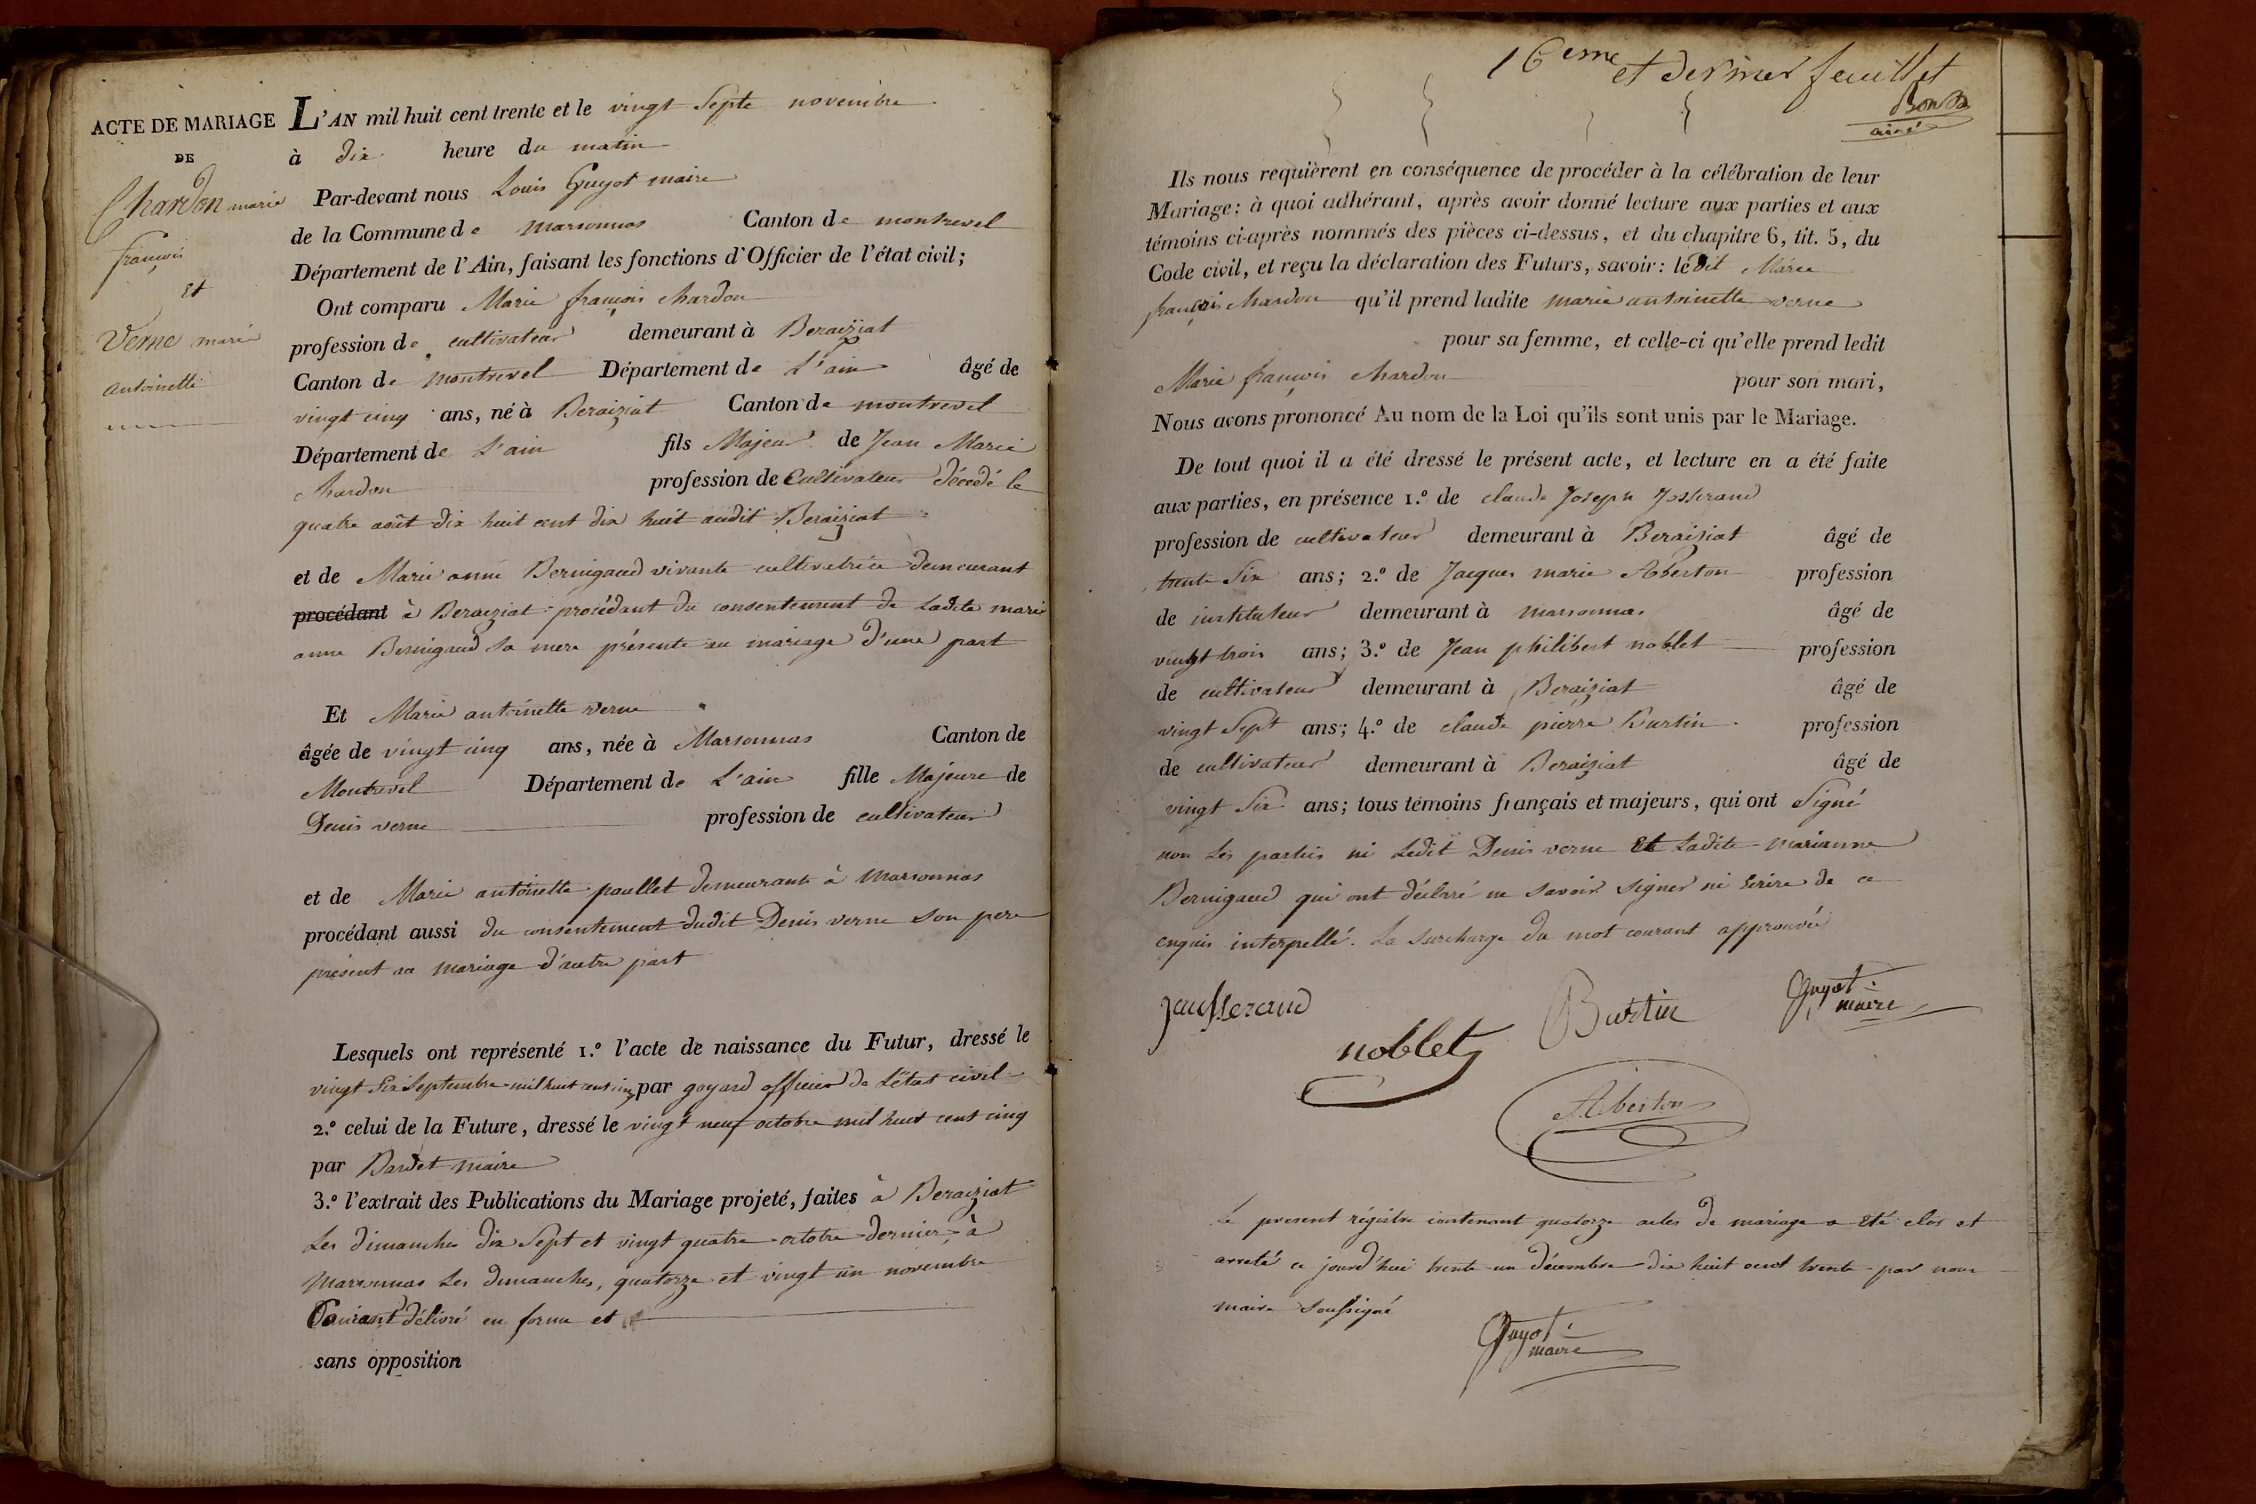 ACTE DE MARIAGE
DE
Chardon marie
françois
et
Verne marie
antoinette
L'AN mil huit cent trente et le vingt Septe novembre
à dix heure du matin
Par-devant nous Louis Guyot maire
de la Commune de marsonnas Canton de montrevel
Département de l'Ain, faisant les fonctions d'Officier de l'état civil;
Ont comparu Marie françois chardon
profession de cultivateur demeurant à Beraiziat
Canton de montrevel Département de L'ain âgé de
vingt cinq ans, né à Beraiziat Canton de montrevel
Département de L'ain fils Majeur de Jean Marie
chardon profession de Cultivateur décédé le
quatre août dix huit cent dix huit audit Beraiziat
et de Marie anne Bernigaud vivante cultivatrice demeurant
procédant à Beraiziat procédant du consentement de Ladite marie
anne Bernigaud sa mere présente au mariage d'une part
Et Marie antoinette verne
âgée de vingt cinq ans, née à Marsonnas Canton de
Montrevel Département de L'ain fille Majeure de
Denis verne profession de cultivateur
et de Marie antoinette paullet demeurant à Marsonnas
procédant aussi du consentement dudit Denis verne son pere
présent au mariage d'autre part
Lesquels ont représenté 1.º l'acte de naissance du Futur, dressé le
vingt Six Septembre mil huit cent cinq par goyard officier de L'état civil
2.º celui de la Future, dressé le vingt neuf octobre mil huit cent cinq
par Bardet maire
3.º l'extrait des Publications du Mariage projeté, faites à Beraiziat
Les dimanches dix Sept et vingt quatre octobre dernier, à
Marsonnas Les dimanches, quatorze et vingt un novembre
Courant délivré en forme et
sans opposition
16eme et dernier feuillet
ainé
Ils nous requièrent en conséquence de procéder à la célébration de leur
Mariage: à quoi adhérant, après avoir donné lecture aux parties et aux
témoins ci-après nommés des pièces ci-dessus, et du chapitre 6, tit. 5, du
Code civil, et reçu la déclaration des Futurs, savoir: ledit Marie
françois chardon qu'il prend ladite marie antoinette verne
pour sa femme, et celle-ci qu'elle prend ledit
Marie françois chardon pour son mari,
Nous avons prononcé Au nom de la Loi qu'ils sont unis par le Mariage.
De tout quoi il a été dressé le présent acte, et lecture en a été faite
aux parties, en présence 1.º de claude Joseph Josserand
profession de cultivateur demeurant à Beraiziat âgé de
trente Six ans; 2.º de Jacques marie Aberton profession
de instituteur demeurant à marsonnas âgé de
vingt trois ans; 3.º de Jean philibert noblet profession
de cultivateur demeurant à Beraiziat âgé de
vingt Sept ans; 4.º de claude pierre Burtin profession
de cultivateur demeurant à Beraiziat âgé de
vingt Six ans; tous témoins français et majeurs, qui ont Signé
non Les parties ni Ledit Denis verne Et Ladite marianne
Bernigaud qui ont déclaré ne savoir signer ni Ecrire de ce
enquis interpellé. La surcharge du mot courant approuvée
Jausserand
noblet
Burtin
Guyot maire
Aberton
Le present régistre contenant quatorze actes de mariage a Eté clos et
arreté ce jourd'hui trente un décembre dix huit cent trente par nous
maire soussigné
Guyot
maire